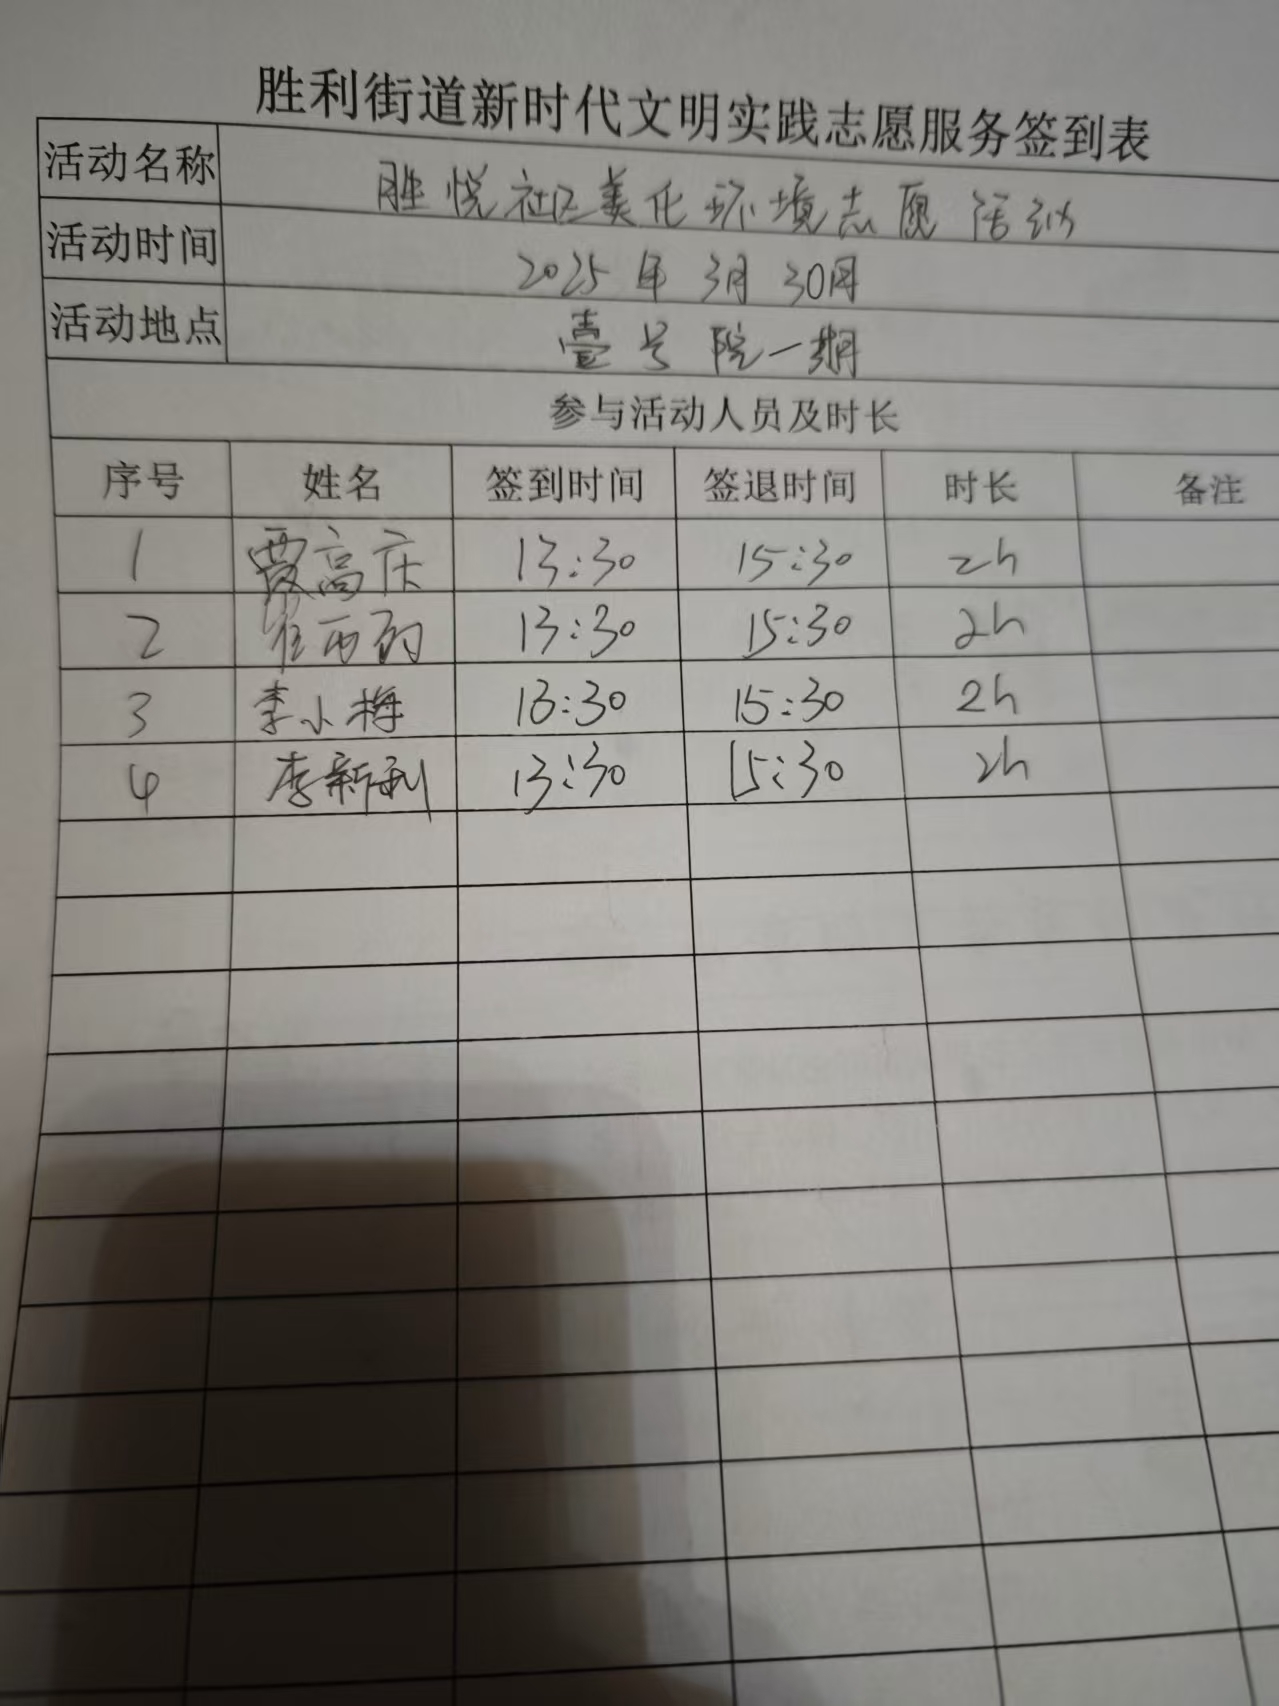 胜利街道新时代文明实践志愿服务签到表
活动名称 胜悦社区美化环境志愿活动
活动时间 2025年3月30日
活动地点 壹号院一期
参与活动人员及时长
序号 姓名 签到时间 签退时间 时长 备注
1 高庆 13:30 15:30 2h
2 13:30 15:30 2h
3 李小梅 13:30 15:30 2h
4 李新利 13:30 15:30 2h